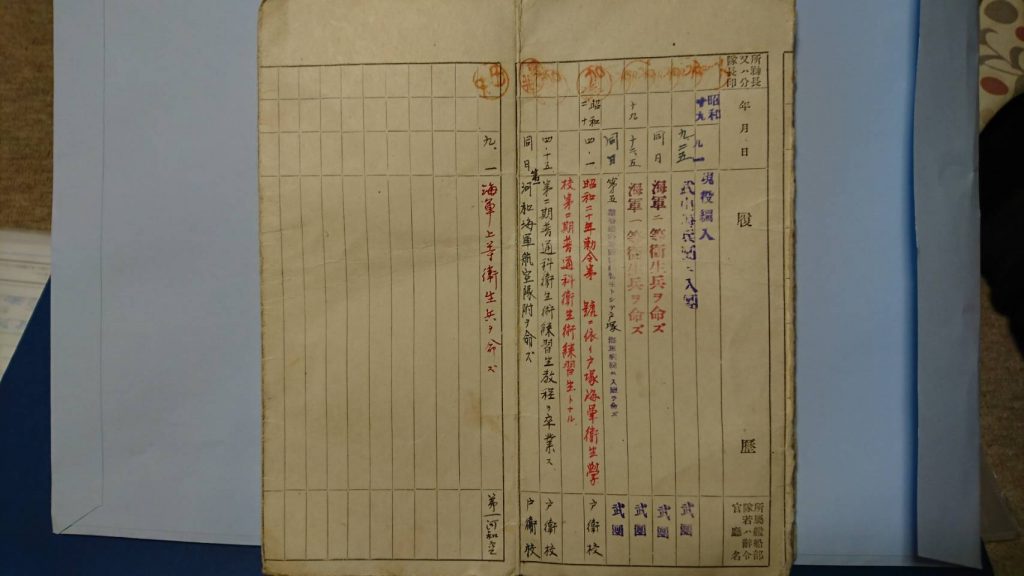 所轄長又ハ分隊長印
年月日
履歴
所属艦船部隊若ハ辞令官廳名
昭和十九 九 一 現役編入
九、二五 武山海兵團ニ入團 武團
同日 海軍二等衛生兵ヲ命ズ 武團
十九 海軍一等衛生兵ヲ命ズ 武團
同日 第五 戸塚 入 ヲ命ズ 武團
昭和二十 四・一 昭和二十年勅令第 號ニ依リ戸塚海軍衛生學 戸衛校
校第 期普通科衛生術練習生トナル
四・十五 第 期普通科衛生術練習生教程ヲ卒業ス 戸衛校
同日 第一河和海軍航空隊附ヲ命ズ 戸衛校
九、一 海軍上等衛生兵ヲ命ズ 第一河和空